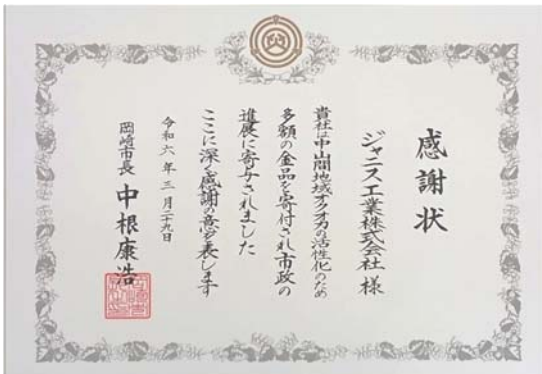 感謝状
ジャニス工業株式会社 様
貴社は中山間地域オクオカの活性化のため
多額の金品を寄付され市政の
進展に寄与されました
ここに深く感謝の意を表します
令和六年三月二十九日
岡崎市長 中根康浩